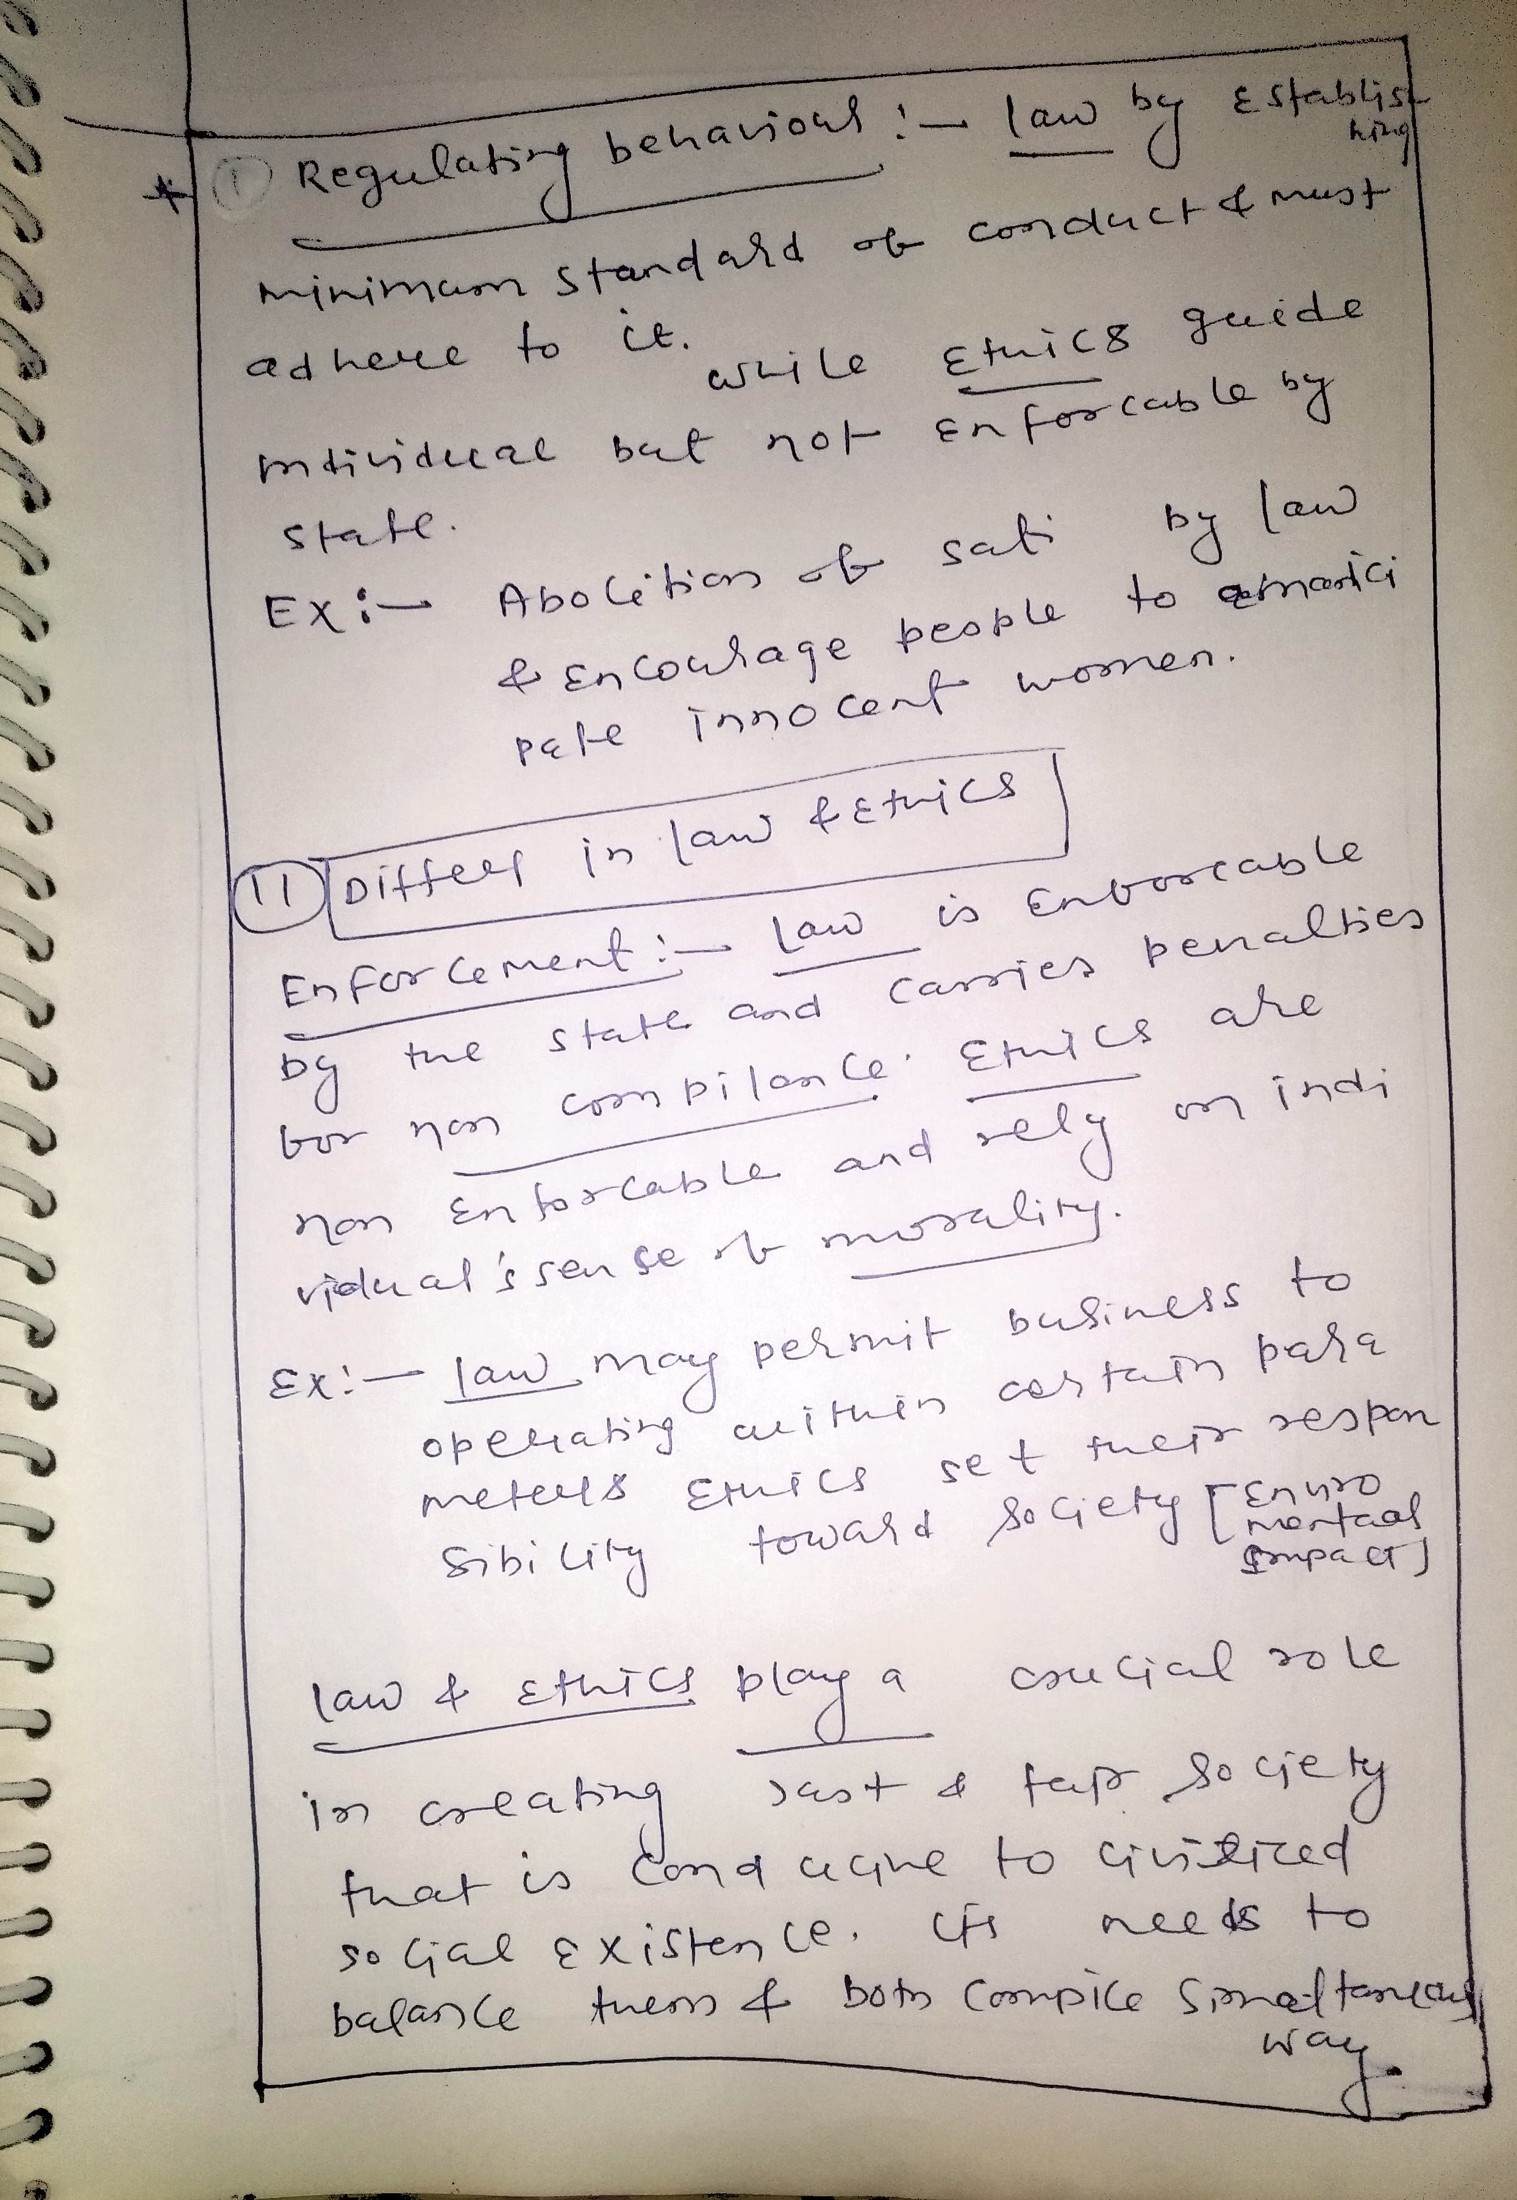 * ① Regulating behaviour :- law by Establis
hing
minimum standard of conduct & must
adhere to it.
while Ethics guide
individual but not enforcable by
state.
Ex :- Abolition of sati by law
& Encourage people to emanci
pate innocent women.
(11) Differs in law & Ethics
Enforcement :- Law is enforcable
by the state and carries penalties
for non compilance. Ethics are
non enforcable and rely on indi
vidual's sense of morality.
Ex :- law may permit business to
operating within certain para
meters Ethics set their respon
sibility toward society [Enviro
mental
Impact]
law & Ethics play a crucial role
in creating just & fair society
that is conducive to civilized
social existence. its needs to
balance them & both compile simultaneous
way.